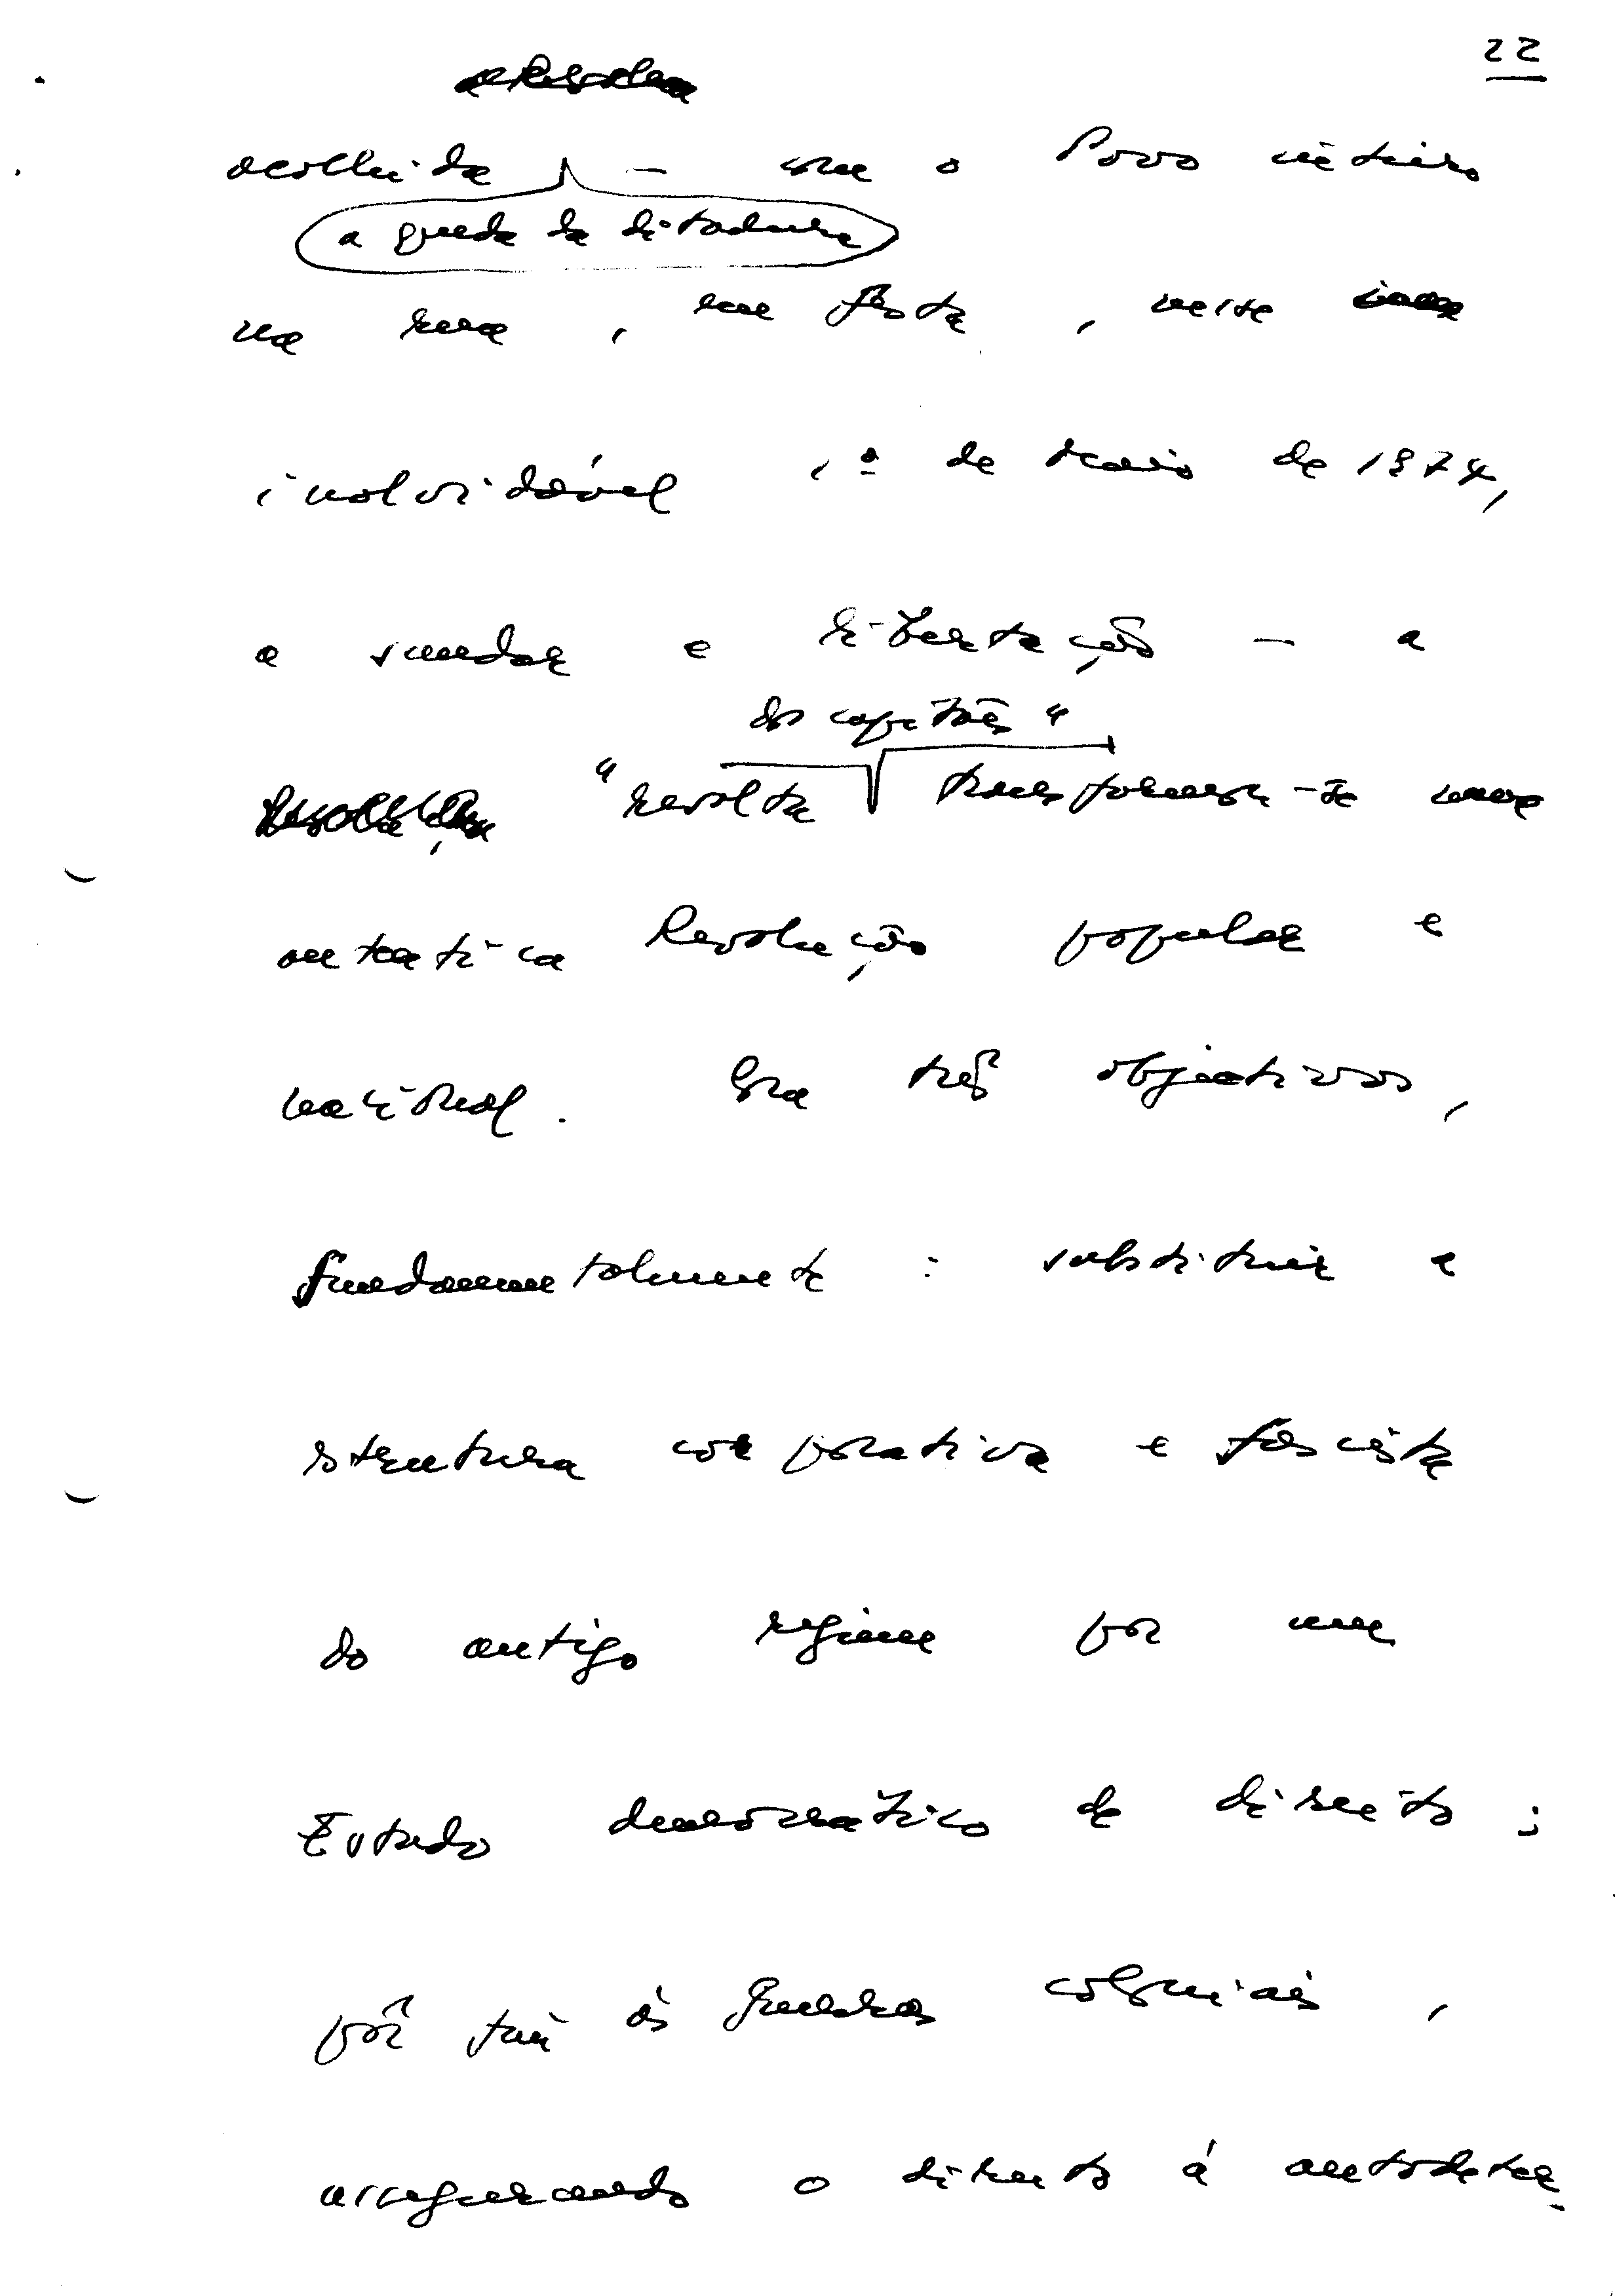 22
acolhida — com o Povo inteiro
a queda da ditadura
na rua, em festa, nesse
inolvidável 1º de Maio de 1974,
a saudar a libertação — a
dos capitães"
"revolta transformou-se numa
autêntica Revolução popular e
nacional. Com três objectivos,
fundamentalmente: substituir a
estrutura corporativa e fascista
do antigo regime por um
Estado democrático de direito;
pôr fim às guerras coloniais,
assegurando o direito à autodeter-